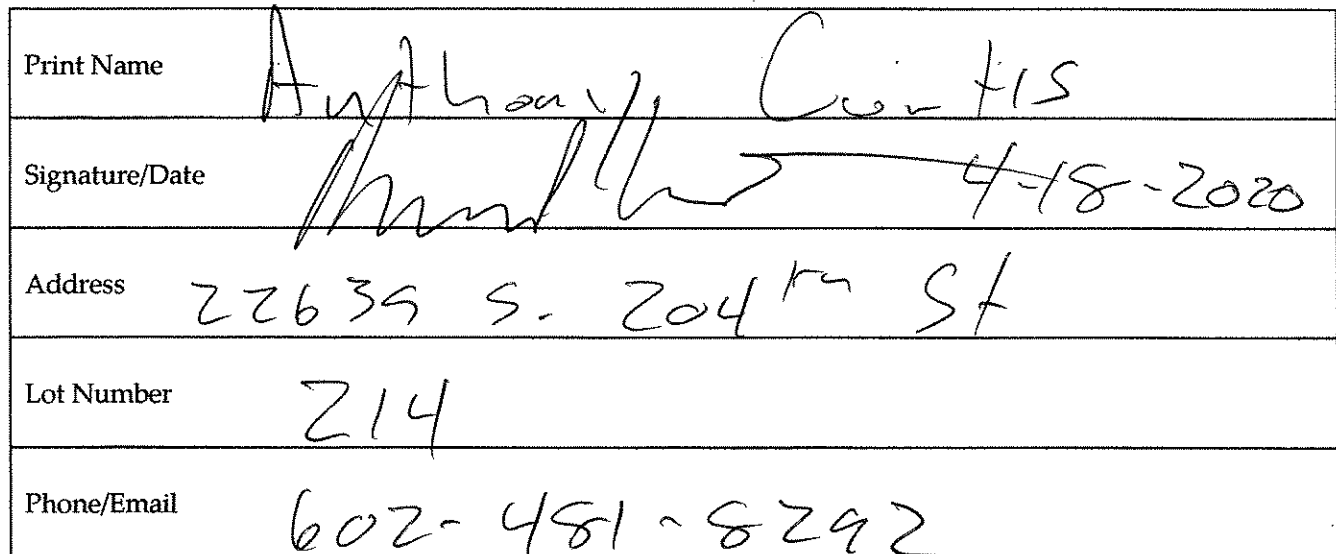 Print Name Anthony Curtis
Signature/Date 4-18-2020
Address 22639 S. 204th St
Lot Number 214
Phone/Email 602-481-8292